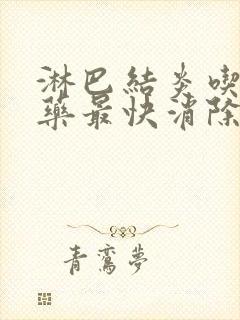 淋巴結炎喫
藥最快消除
青鸞夢